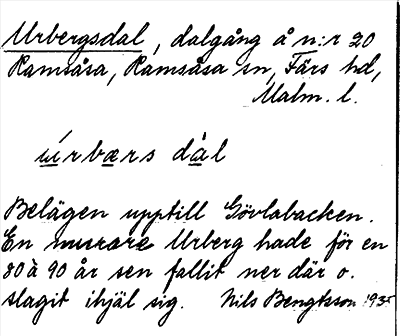 Urbergsdal, dalgång å n:r 20
Ramsåsa, Ramsåsa sn, Färs hd,
Malm. l.
úrbærs dàl
Belägen upptill Gövlabacken.
En murare Urberg hade för en
80 à 90 år sen fallit ner där o.
slagit ihjäl sig. Nils Bengtsson 1935